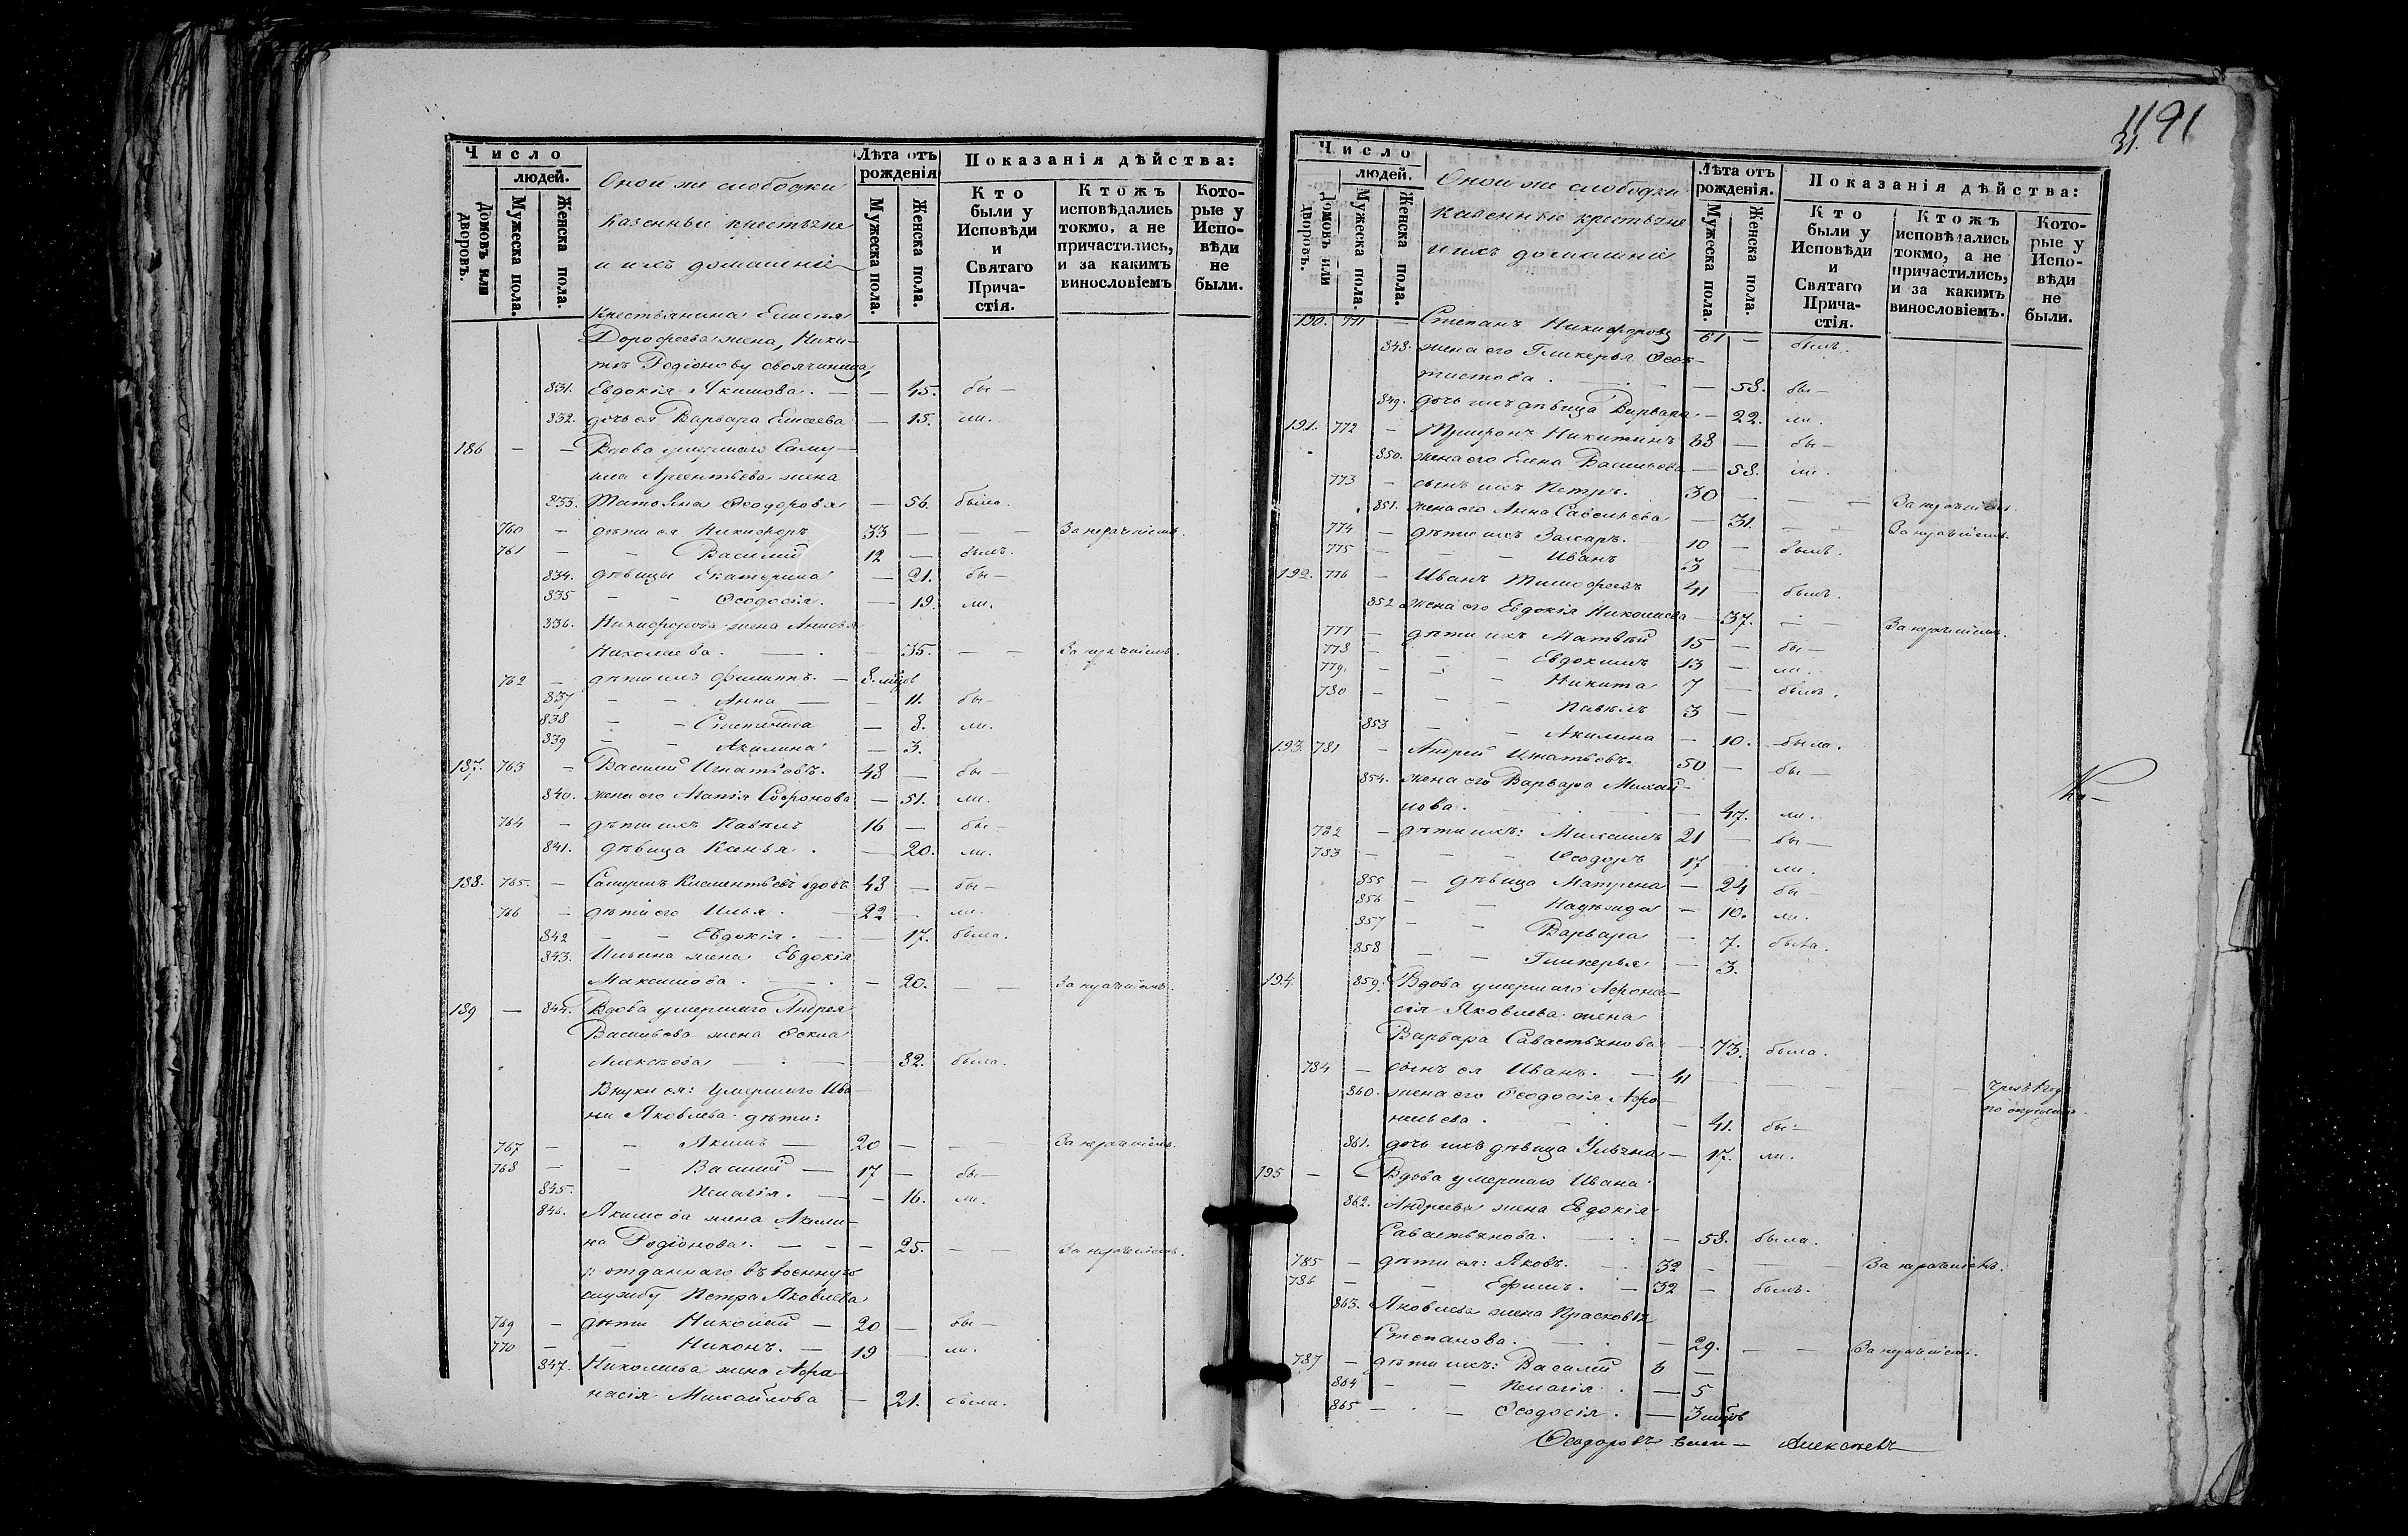 1191
31.
Число
людей.
Домовъ или дворовъ.
Мужеска пола.
Женска пола.
Оной же слободки
казенные крестьяне
и ихъ домашніе
Лѣта отъ рожденія
Мужеска пола.
Женска пола.
Показанія дѣйства:
Кто были у Исповѣди и Святаго Прича-стія.
Ктожъ исповѣдались токмо, а не причастились, и за какимъ винословіемъ
Кото-рые у Испо-вѣди не были.
Крестьянина Елисея
Дорофеева жена, Ники-
тѣ Родіонову своячиница,
831. Евдокія Якимова. — — 45. бы —
832. дочь ея Варвара Елисеева — 15. ли.
186 — — Вдова умершаго Саму-
ила Арсентьева жена
833. Татьяна Ѳеодорова — 56. была.
760 — дѣти ея Никифоръ 33 — — — За нерачніемъ.
761 — — Василий 12 — былъ.
834. дѣвицы Екатерина — 21. бы —
835 — — Ѳеодосія. — 19. ли.
836. Никифорова жена Анисья
Николаева. — . — 35. — — За нерачніемъ.
762 — дѣти ихъ Филиппъ. — 8. мѣцов
837 — — Анна — — 11. бы —
838 — — Степанида — 8. ли.
839 — — Акилина — 3.
187. 763 — Василий Игнатьевъ. 48 — бы —
840. жена его Агапія Софронова — 51. ли.
764 — дѣти ихъ Павелъ 16 — бы —
841. дѣвица Ксенья . — 20. ли.
188. 765. — Самуилъ Климентьевъ вдовъ 48 — бы —
766 — дѣти его Илья. — 22 — ли.
842 — — Евдокія. — — 17. была.
843. Ильина жена Евдокія
Максимова. — . — 20. — — За нерачніемъ.
189 — 844. Вдова умершаго Андрея
Васильева жена Ѳекла
Алексѣева — . — — 82. была.
Внуки ея: умершаго Ива-
на Яковлева дѣти:
767 — — Акимъ — 20 — — — За нерачніемъ.
768 — — Василий — 17 — бы —
845. Пелагія. — — 16. ли.
846. Якимова жена Акили-
на Родіонова. — — — 25. — — За нерачніемъ.
отданнаго въ военную
службу Петра Яковлева
769 — дѣти Николай — 20 — бы —
770 — — Никонъ. — 19 — ли.
847. Николаева жена Афа-
насія Михайлова — 21. была.
Число
людей.
Домовъ или дворовъ.
Мужеска пола.
Женска пола.
Оной же слободки
казенные крестьяне
и ихъ домашніе
Лѣта отъ рожденія.
Мужеска пола.
Женска пола.
Показанія дѣйства:
Кто были у Исповѣди и Святаго Прича-стія.
Ктожъ исповѣдались токмо, а не причастились, и за какимъ винословіемъ.
Кото-рые у Испо-вѣди не были.
190. 771 — Степанъ Никифоровъ 61 — былъ.
848. жена его Гликерья Ѳеок-
тистова . — . — — 58. бы —
849. дочь ихъ дѣвица Варвара — 22. ли.
191. 772 — Трифонъ Никитинъ 68 — бы —
850. жена его Елена Васильева — 58. ли.
773 — сынъ ихъ Петръ. 30 — — — За нерачніемъ
851. жена его Анна Савельева — 31. — — За нерачніемъ.
774 — дѣти ихъ Захаръ. 10 — былъ.
775 — — — Иванъ 3 —
192. 776 — Иванъ Тимофеевъ 41 — былъ.
852 жена его Евдокія Николаева — 37. — — За нерачніемъ.
777 — дѣти ихъ Матвѣй 15 — бы —
778 — — Евдокимъ 13 — ли.
779. — — Никита 7 — былъ.
780 — — Павелъ 3 —
853 — — Акилина — 10. была.
193. 781 — Андрей Игнатьевъ. 50 — бы —
854. жена его Варвара Михай-
лова. — 47. ли.
782 — дѣти ихъ: Михаилъ 21 — бы —
783 — — Ѳеодоръ 17 — ли.
855 — дѣвица Матрена — 24 бы —
856 — — Надежда — 10. ли.
857 — — Варвара — 7. была.
858 — — Гликерья — 3.
194. 859. Вдова умершаго Афона-
сія Яковлева жена
Варвара Савастьянова — 73. была.
784 — сынъ ея Иванъ. — 41 — — — —
860. жена его Ѳеодосія Афо-
насьева . — 41. бы —
861. дочь ихъ дѣвица Ульяна — 17. ли.
195 — Вдова умершаго Ивана
862. Андреева жена Евдокія
Савастьянова. — 58. была.
785 — дѣти ея: Яковъ. 32 — — За нерачніемъ.
786 — — Ефимъ. — 32 — былъ.
863. Яковлева жена Прасковья
Степанова. — 29. — — За нерачніемъ.
787 — дѣти ихъ: Василий 6 —
864 — — Пелагія. — 5
865 — — Ѳеодосія. — 3 мѣцов
Ѳеодоровъ Алексѣевъ